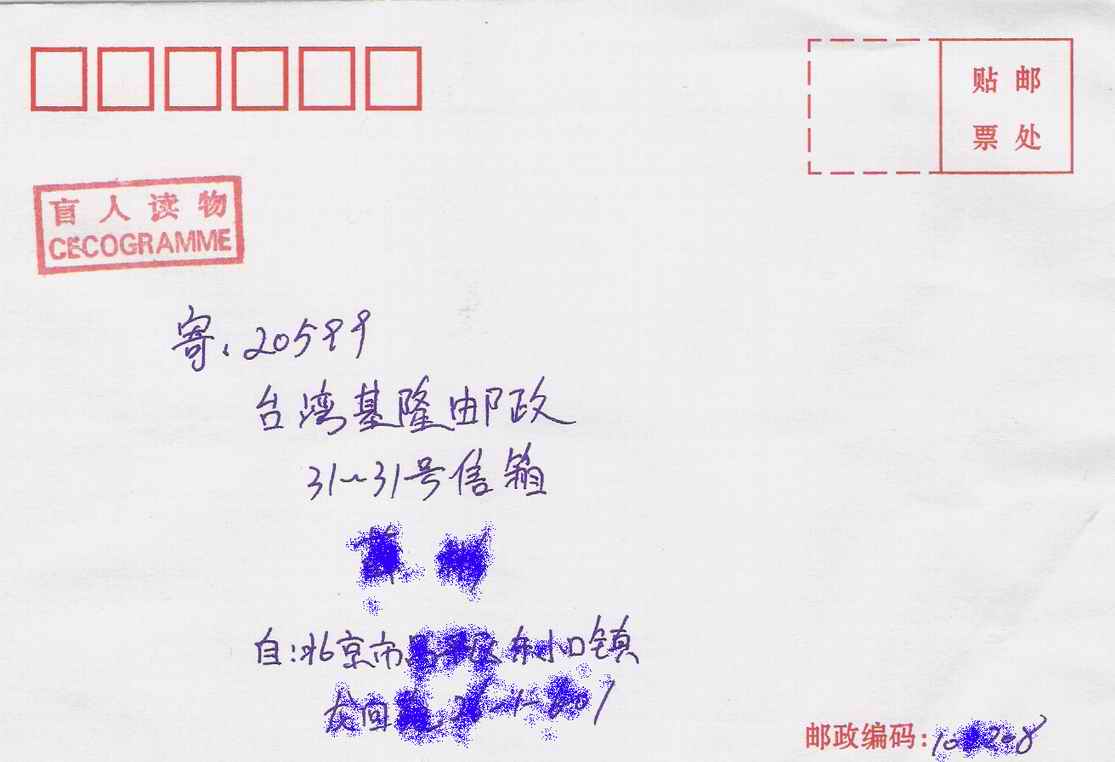 贴 邮
票 处
盲人读物
CECOGRAMME
寄:20599
台湾基隆邮政
31~31号信箱
自:北京市 东小口镇
邮政编码: